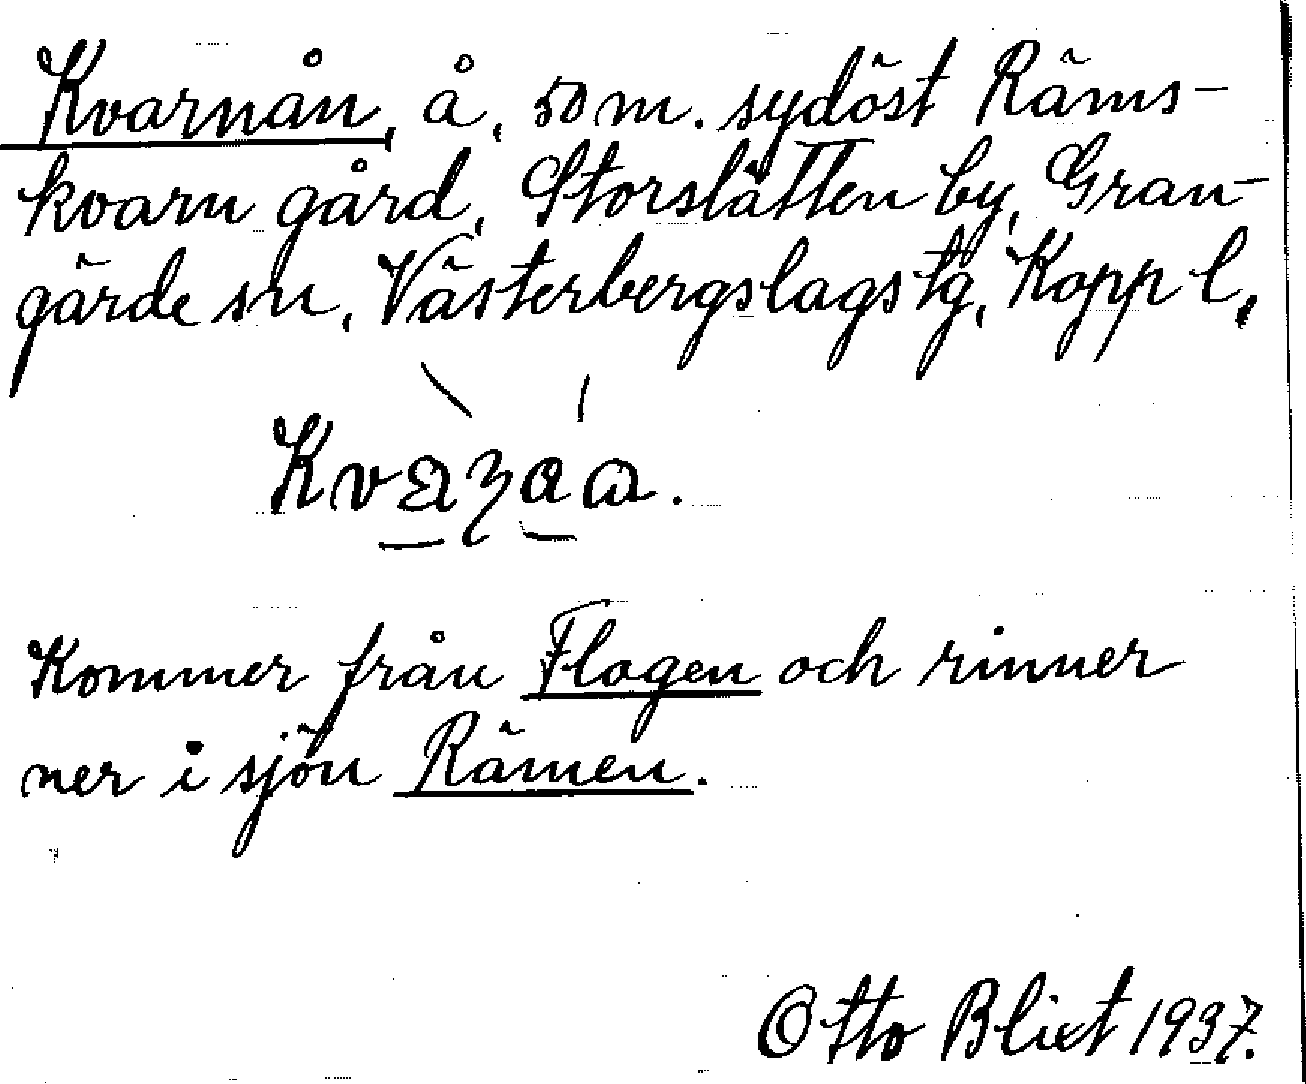 Kvarnån, å, 50 m. sydöst Räms-
kvarn gård, Storslätten by, Gran-
gärde sn, Västerbergslags tg, Kopp l.
Kommer från Flogen och rinner
ner i sjön Rämen.
Otto Blixt 1937.